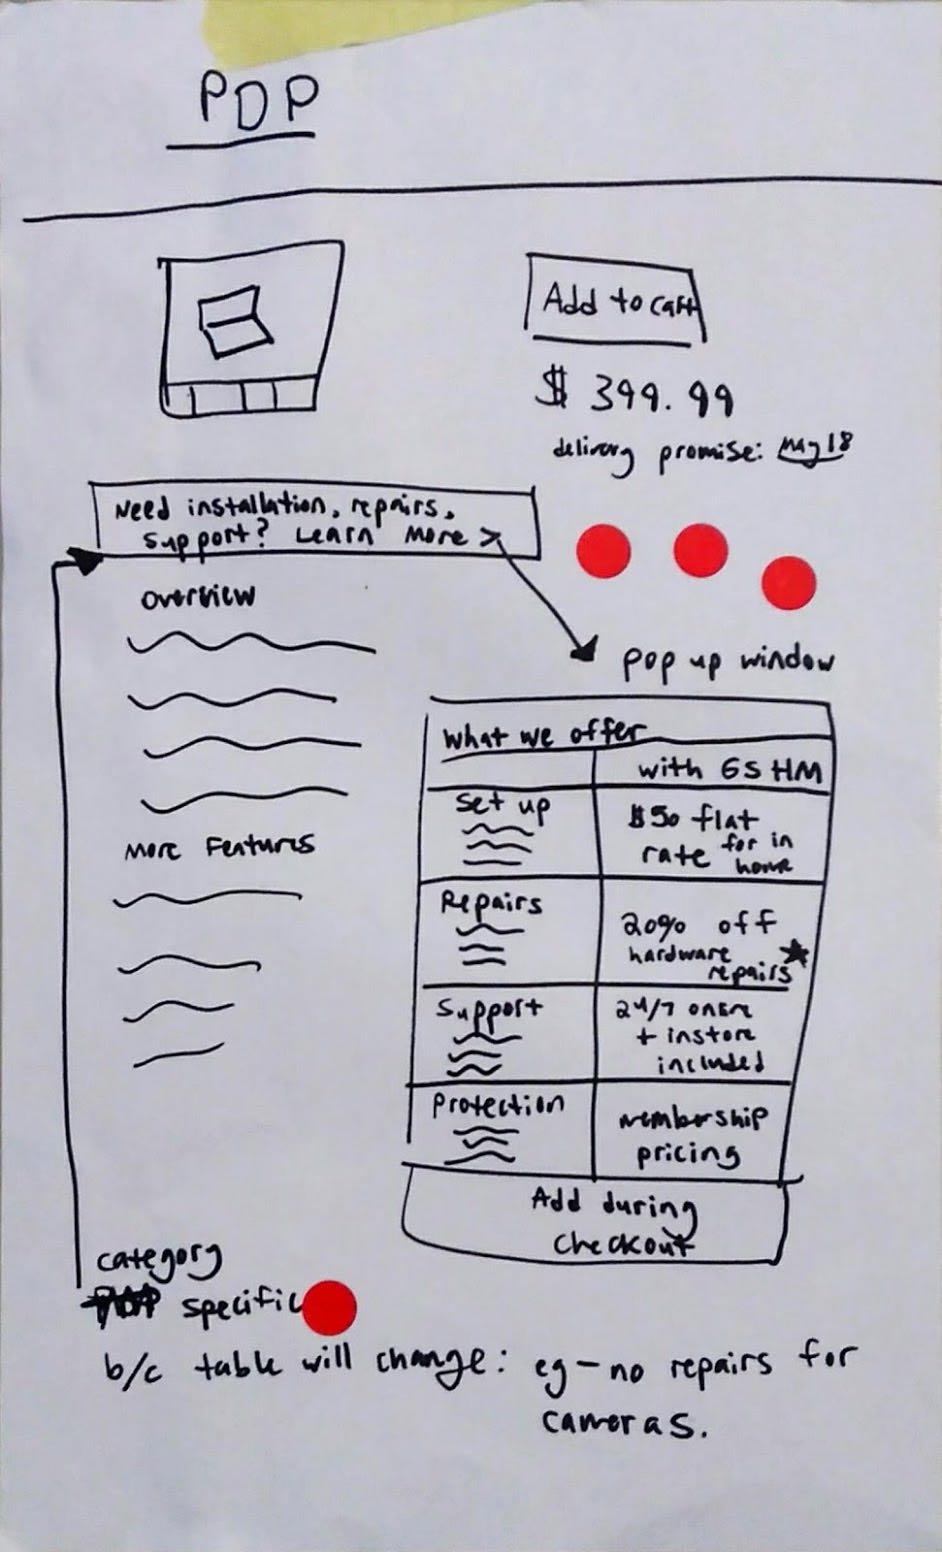 PDP
Add to cart
$ 399.99
delivery promise: May 18
Need installation, repairs,
support? Learn More >
Overview
pop up window
What we offer
with GS HM
Set up
$50 flat
rate for in
home
More Features
Repairs
20% off
hardware
repairs
Support
24/7
+ instore
included
Protection
membership
pricing
Add during
checkout
category
specific
b/c table will change: eg - no repairs for
cameras.